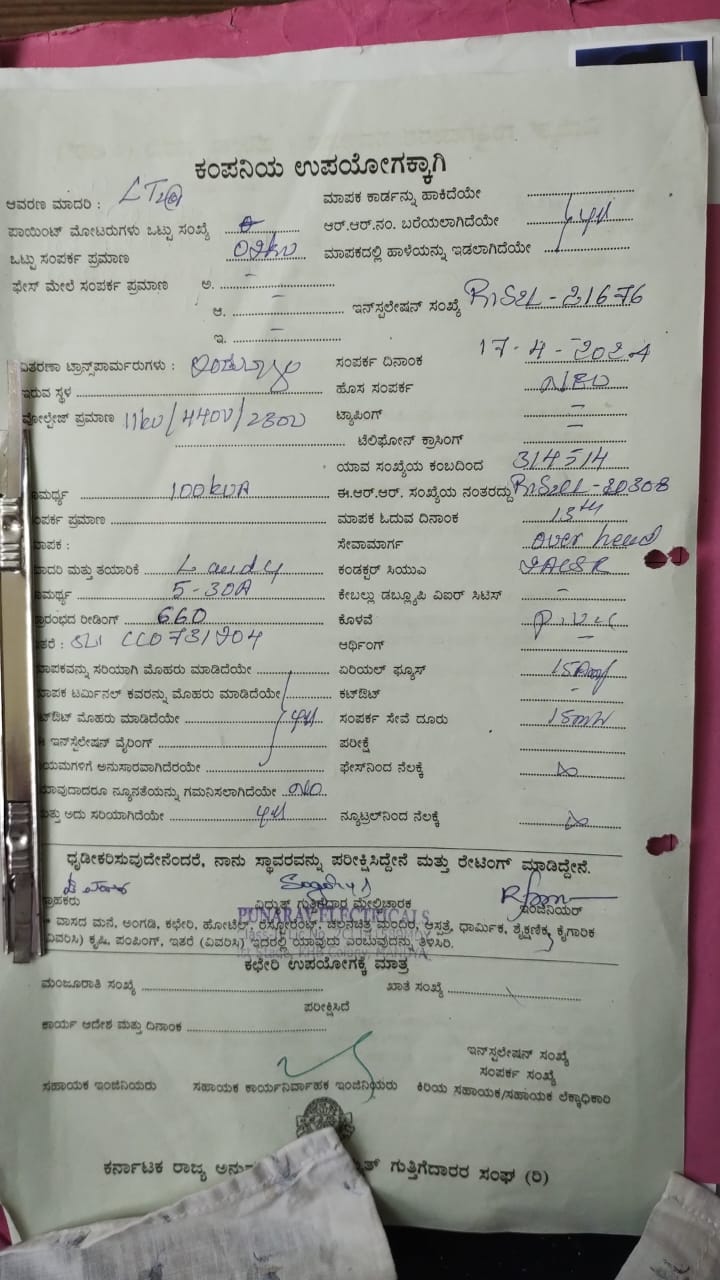 ಕಂಪನಿಯ ಉಪಯೋಗಕ್ಕಾಗಿ
ಆವರಣ ಮಾದರಿ : LT2@ ಮಾಪಕ ಕಾರ್ಡನ್ನು ಹಾಕಿದೆಯೇ
ಪಾಯಿಂಟ್ ಮೋಟರುಗಳು ಒಟ್ಟು ಸಂಖ್ಯೆ ಆರ್.ಆರ್.ನಂ. ಬರೆಯಲಾಗಿದೆಯೇ
ಒಟ್ಟು ಸಂಪರ್ಕ ಪ್ರಮಾಣ ಮಾಪಕದಲ್ಲಿ ಹಾಳೆಯನ್ನು ಇಡಲಾಗಿದೆಯೇ
ಫೇಸ್ ಮೇಲೆ ಸಂಪರ್ಕ ಪ್ರಮಾಣ ಅ. -
ಆ. - ಇನ್‌ಸ್ಟಲೇಷನ್ ಸಂಖ್ಯೆ
ಇ. -
ವಿತರಣಾ ಟ್ರಾನ್ಸ್‌ಪಾರ್ಮರುಗಳು : ಸಂಪರ್ಕ ದಿನಾಂಕ 17-4-2024
ಇರುವ ಸ್ಥಳ ಹೊಸ ಸಂಪರ್ಕ
ವೋಲ್ಟೇಜ್ ಪ್ರಮಾಣ 11kv/440V/230V ಟ್ಯಾಪಿಂಗ್ -
ಟೆಲಿಫೋನ್ ಕ್ರಾಸಿಂಗ್ -
ಯಾವ ಸಂಖ್ಯೆಯ ಕಂಬದಿಂದ
ಸಾಮರ್ಥ್ಯ 100kVA ಈ.ಆರ್.ಆರ್. ಸಂಖ್ಯೆಯ ನಂತರದ್ದು
ಸಂಪರ್ಕ ಪ್ರಮಾಣ ಮಾಪಕ ಓದುವ ದಿನಾಂಕ 13th
ಮಾಪಕ : ಸೇವಾಮಾರ್ಗ over head
ಮಾದರಿ ಮತ್ತು ತಯಾರಿಕೆ L and G ಕಂಡಕ್ಟರ್ ಸಿಯುಎ
ಸಾಮರ್ಥ್ಯ 5-30A ಕೇಬಲ್ಲು ಡಬ್ಲ್ಯೂಪಿ ವಿಐರ್ ಸಿಟಿಸ್ -
ಪ್ರಾರಂಭದ ರೀಡಿಂಗ್ 660 ಕೊಳವೆ P.V.C
ಇತರೆ : ಆರ್ಥಿಂಗ್ -
ಮಾಪಕವನ್ನು ಸರಿಯಾಗಿ ಮೊಹರು ಮಾಡಿದೆಯೇ ಏರಿಯಲ್ ಫ್ಯೂಸ್ 15Amp
ಮಾಪಕ ಟರ್ಮಿನಲ್ ಕವರನ್ನು ಮೊಹರು ಮಾಡಿದೆಯೇ ಕಟ್‌ಔಟ್ -
ಕಟ್‌ಔಟ್ ಮೊಹರು ಮಾಡಿದೆಯೇ ಸಂಪರ್ಕ ಸೇವೆ ದೂರು
ಈ ಇನ್‌ಸ್ಟೆಲೇಷನ್ ವೈರಿಂಗ್ ಪರೀಕ್ಷೆ
ನಿಯಮಗಳಿಗೆ ಅನುಸಾರವಾಗಿದೆರಯೇ ಫೇಸ್‌ನಿಂದ ನೆಲಕ್ಕೆ ∞
ಯಾವುದಾದರೂ ನ್ಯೂನತೆಯನ್ನು ಗಮನಿಸಲಾಗಿದೆಯೇ NO
ಮತ್ತು ಅದು ಸರಿಯಾಗಿದೆಯೇ ನ್ಯೂಟ್ರಲ್‌ನಿಂದ ನೆಲಕ್ಕೆ ∞
ಧೃಡೀಕರಿಸುವುದೇನೆಂದರೆ, ನಾನು ಸ್ಥಾವರವನ್ನು ಪರೀಕ್ಷಿಸಿದ್ದೇನೆ ಮತ್ತು ರೇಟಿಂಗ್ ಮಾಡಿದ್ದೇನೆ.
ಗ್ರಾಹಕರು ವಿದ್ಯುತ್ ಗುತ್ತಿಗೆದಾರ ಮೇಲ್ವಿಚಾರಕ ಇಂಜಿನಿಯರ್
PUNARAV ELECTRICALS
* ವಾಸದ ಮನೆ, ಅಂಗಡಿ, ಕಛೇರಿ, ಹೋಟೆಲ್, ರೆಸ್ಟೋರೆಂಟ್, ಚಲನಚಿತ್ರ ಮಂದಿರ, ಆಸ್ಪತ್ರೆ, ಧಾರ್ಮಿಕ, ಶೈಕ್ಷಣಿಕ, ಕೈಗಾರಿಕ
(ವಿವರಿಸಿ) ಕೃಷಿ, ಪಂಪಿಂಗ್, ಇತರೆ (ವಿವರಿಸಿ) ಇದರಲ್ಲಿ ಯಾವುದು ಎಂಬುವುದನ್ನು ತಿಳಿಸಿರಿ.
ಕಛೇರಿ ಉಪಯೋಗಕ್ಕೆ ಮಾತ್ರ
ಮಂಜೂರಾತಿ ಸಂಖ್ಯೆ ಖಾತೆ ಸಂಖ್ಯೆ
ಪರೀಕ್ಷಿಸಿದೆ
ಕಾರ್ಯ ಆದೇಶ ಮತ್ತು ದಿನಾಂಕ
ಇನ್‌ಸ್ಟಲೇಷನ್ ಸಂಖ್ಯೆ
ಸಂಪರ್ಕ ಸಂಖ್ಯೆ
ಸಹಾಯಕ ಇಂಜಿನಿಯರು ಸಹಾಯಕ ಕಾರ್ಯನಿರ್ವಾಹಕ ಇಂಜಿನಿಯರು ಕಿರಿಯ ಸಹಾಯಕ/ಸಹಾಯಕ ಲೆಕ್ಕಾಧಿಕಾರಿ
ಕರ್ನಾಟಕ ರಾಜ್ಯ ಗುತ್ತಿಗೆದಾರರ ಸಂಘ (ರಿ)